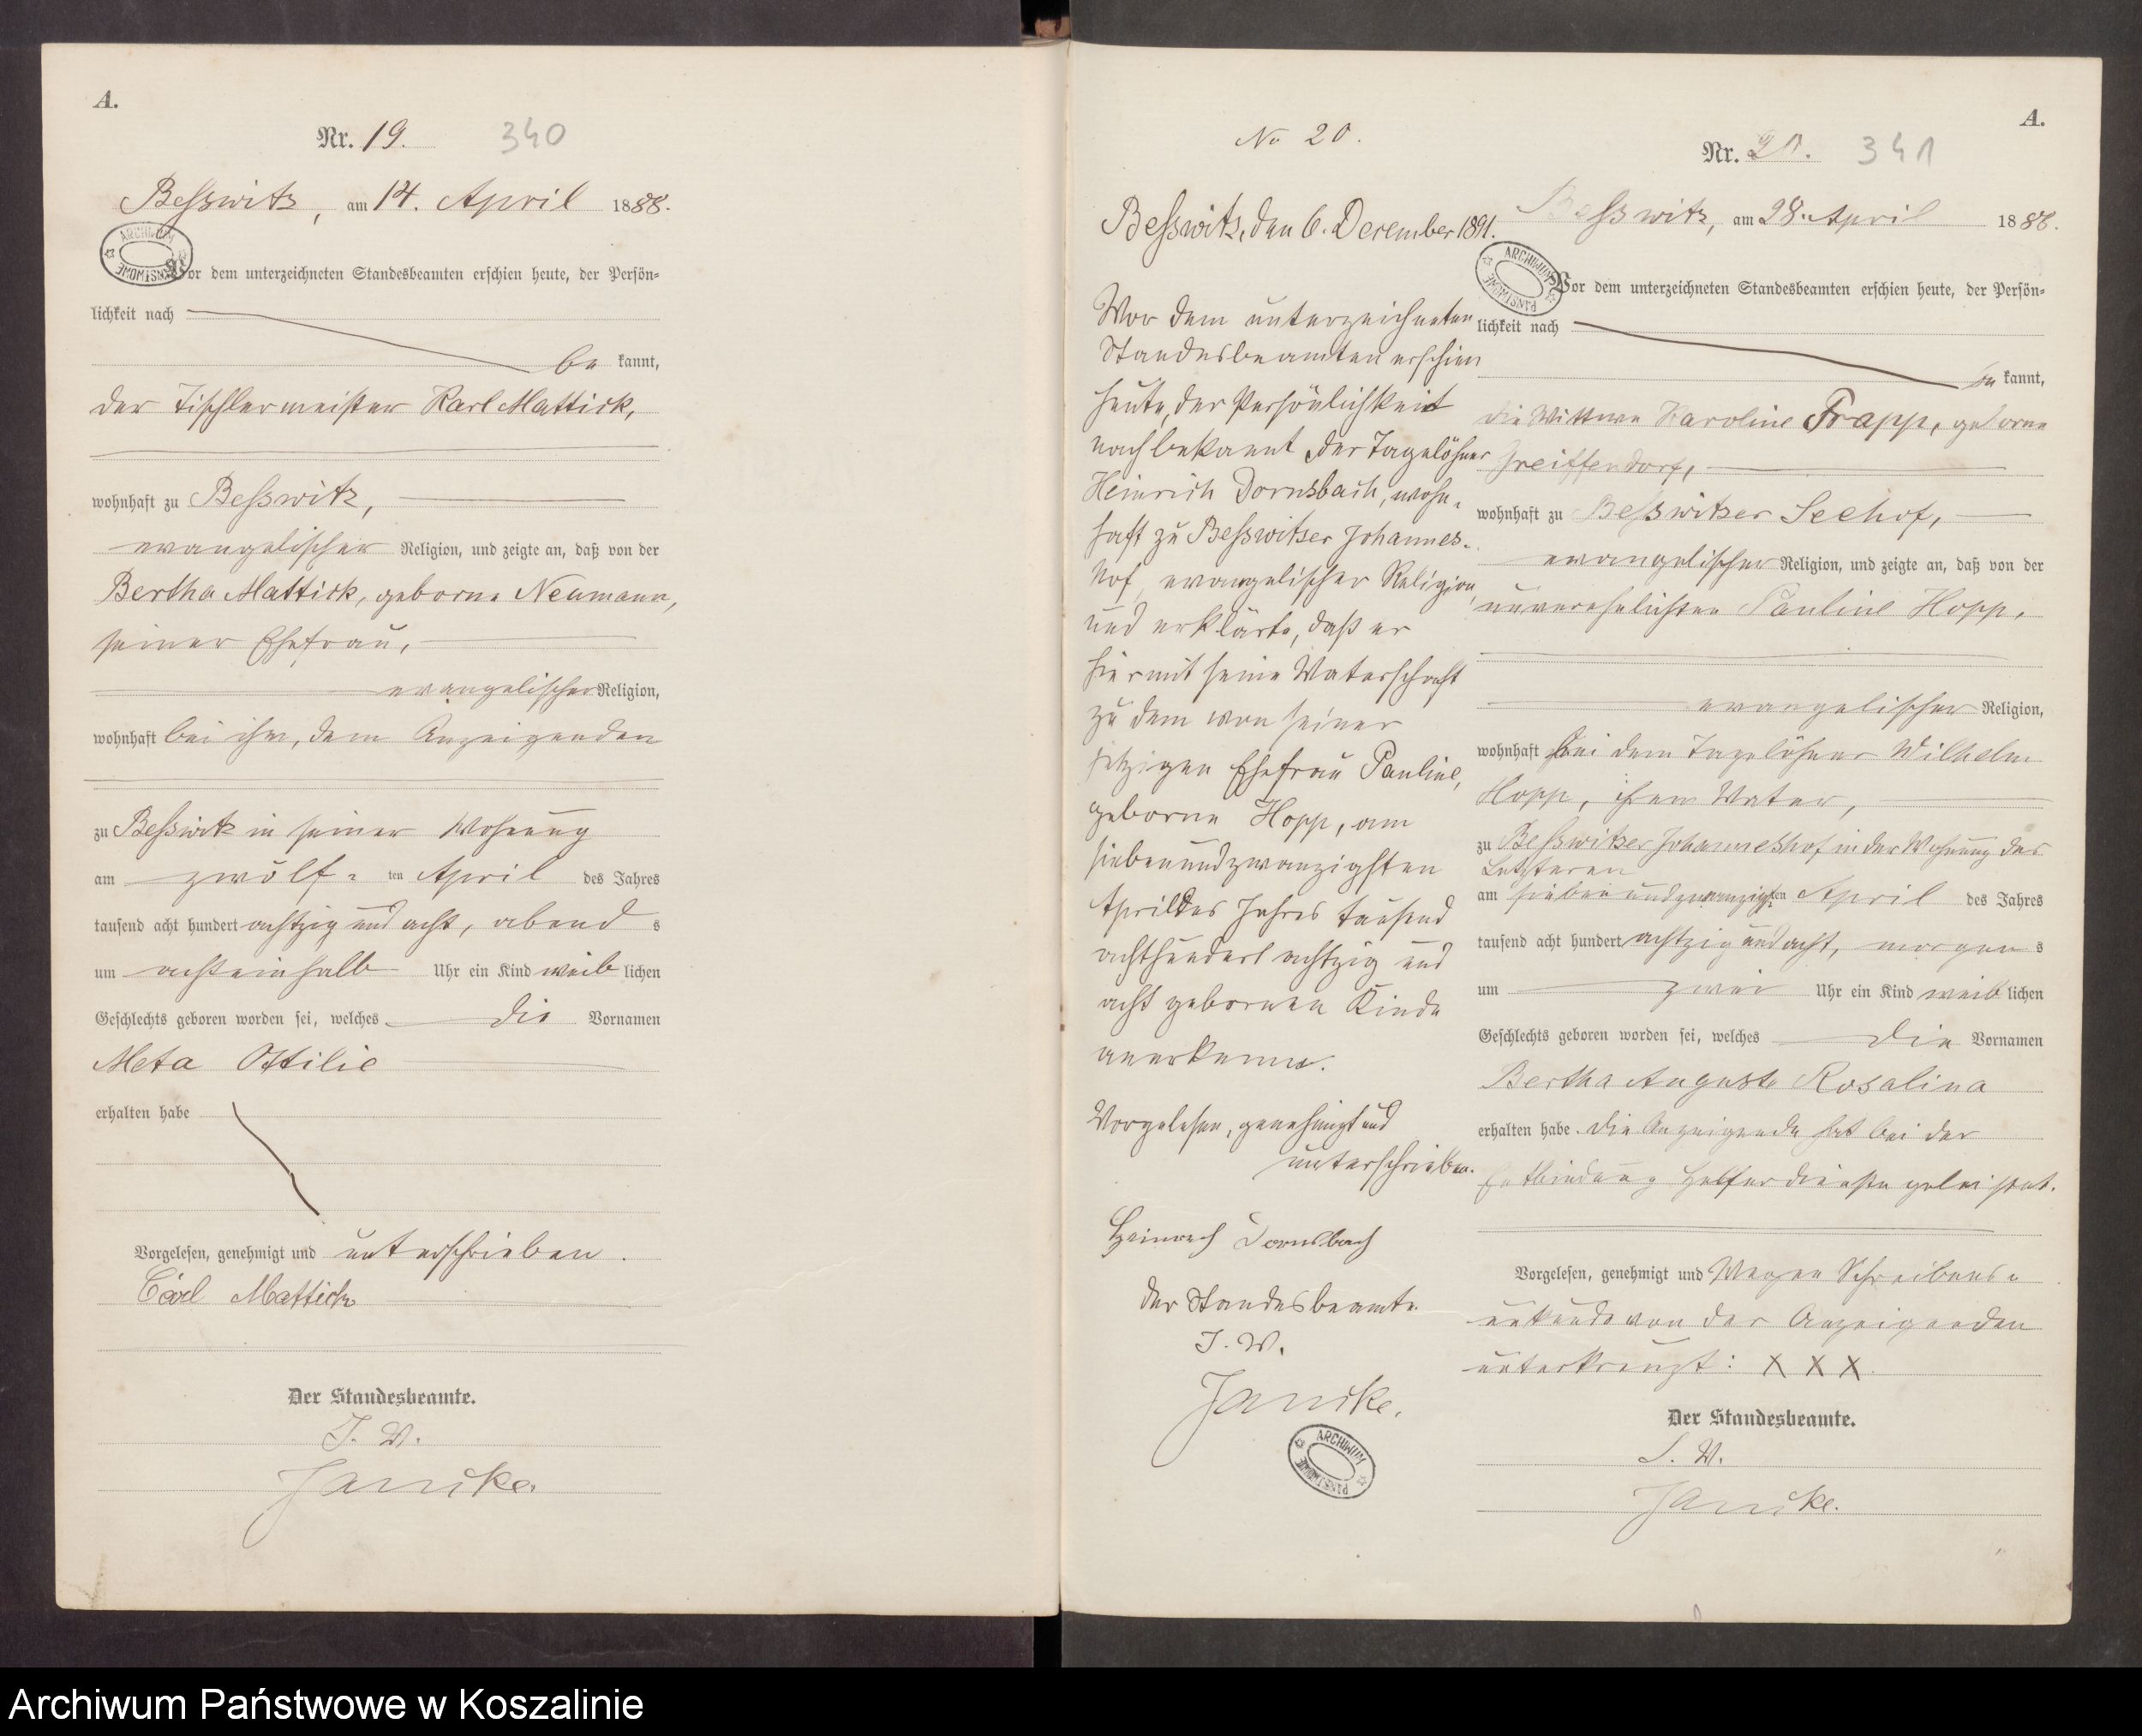 A.
Nr. 19. 340
Beßwitz, am 14. April 1888.
Vor dem unterzeichneten Standesbeamten erschien heute, der Persön-
lichkeit nach
be kannt,
der Tischlermeister Karl Mattick,
wohnhaft zu Beßwitz,
evangelischer Religion, und zeigte an, daß von der
Bertha Mattick, geborne Neumann,
seiner Ehefrau,
evangelischer Religion,
wohnhaft bei ihm, dem Anzeigenden
zu Beßwitz in seiner Wohnung
am zwölf- ten April des Jahres
tausend acht hundert achtzig und acht, abend s
um achteinhalb Uhr ein Kind weib lichen
Geschlechts geboren worden sei, welches die Vornamen
Meta Ottilie
erhalten habe
Vorgelesen, genehmigt und unterschrieben.
Carl Mattick
Der Standesbeamte.
J. V.
Janike.
ARCHIWUM PAŃSTWOWE
No 20.
Beßwitz, den 6. December 1891.
Vor dem unterzeichneten
Standesbeamten erschien
heute, der Persönlichkeit
nach bekannt der Tagelöhner
Heinrich Dornsbach, wohn-
haft zu Beßwitzer Johannes-
hof, evangelischer Religion,
und erklärte, daß er
hiermit seine Vaterschaft
zu dem von seiner
jetzigen Ehefrau Pauline,
geborne Hopp, am
siebenundzwanzigsten
April des Jahres tausend
achthundert achtzig und
acht gebornen Kinde
anerkenne.
Vorgelesen, genehmigt und
unterschrieben.
Heinrich Dornsbach
Der Standesbeamte.
J. V.
Janike.
ARCHIWUM PAŃSTWOWE
A.
Nr. 21. 341
Beßwitz, am 28. April 1888.
Vor dem unterzeichneten Standesbeamten erschien heute, der Persön-
lichkeit nach
be kannt,
die Wittwe Karoline Trapp, geborne
Greiffendorf,
wohnhaft zu Beßwitzer Seehof,
evangelischer Religion, und zeigte an, daß von der
unverehelichten Pauline Hopp,
evangelischer Religion,
wohnhaft bei dem Tagelöhner Wilhelm
Hopp, ihrem Vater,
zu Beßwitzer Johanneshof in der Wohnung des
Letzteren
am siebenundzwanzigsten April des Jahres
tausend acht hundert achtzig und acht, morgen s
um zwei Uhr ein Kind weib lichen
Geschlechts geboren worden sei, welches die Vornamen
Bertha Auguste Rosalina
erhalten habe. Die Anzeigende hat bei der
Entbindung Helferdienste geleistet.
Vorgelesen, genehmigt und Wegen Schreibens-
unkunde von der Anzeigenden
unterkreuzt: X X X.
Der Standesbeamte.
J. V.
Janike.
ARCHIWUM PAŃSTWOWE
Archiwum Państwowe w Koszalinie